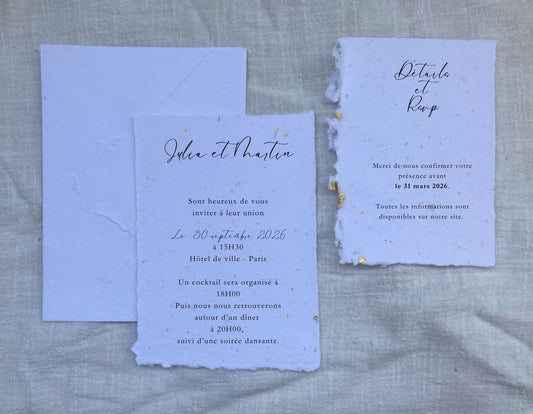 Julia et Martin
Sont heureux de vous
inviter à leur union
Le 30 septembre 2026
à 15H30
Hôtel de ville - Paris
Un cocktail sera organisé à
18H00
Puis nous nous retrouverons
autour d'un dîner
à 20H00,
suivi d'une soirée dansante.
Détails
et
Rsvp
Merci de nous confirmer votre
présence avant
le 31 mars 2026.
Toutes les informations sont
disponibles sur notre site.